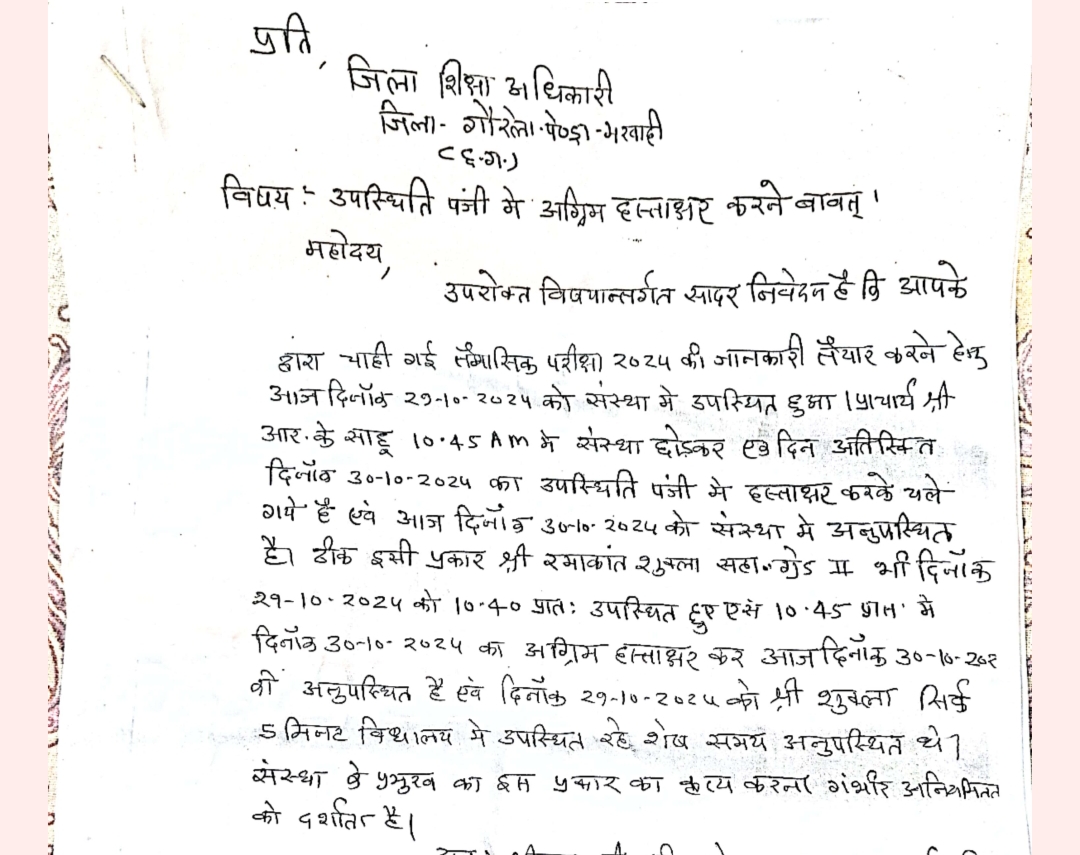 प्रति,
जिला शिक्षा अधिकारी
जिला- गौरेला-पेण्ड्रा-मरवाही
(छ.ग.)
विषय :- उपस्थिति पंजी मे अग्रिम हस्ताक्षर करने बावत् ।
महोदय,
उपरोक्त विषयान्तर्गत सादर निवेदन है कि आपके
द्वारा चाही गई तैमासिक परीक्षा 2024 की जानकारी तैयार करने हेतु
आज दिनॉक 29-10-2024 को संस्था मे उपस्थित हुआ । प्राचार्य श्री
आर.के साहू 10.45 AM मे संस्था छोड़कर एवं दिन अतिरिक्त
दिनॉक 30-10-2024 का उपस्थिति पंजी मे हस्ताक्षर करके चले
गये है एवं आज दिनॉक 30-10-2024 को संस्था मे अनुपस्थित
है। ठीक इसी प्रकार श्री रमाकांत शुक्ला सहा. ग्रेड II भी दिनॉक
29-10-2024 को 10.40 प्रातः उपस्थित हुए एवं 10.45 प्रातः मे
दिनॉक 30-10-2024 का अग्रिम हस्ताक्षर कर आज दिनॉक 30-10-202
को अनुपस्थित है एवं दिनॉक 29-10-2024 को श्री शुक्ला सिर्फ
5 मिनट विद्यालय मे उपस्थित रहे शेष समय अनुपस्थित थे।
संस्था के प्रमुख का इस प्रकार का कृत्य करना गंभीर अनियमितत
को दर्शाता है।